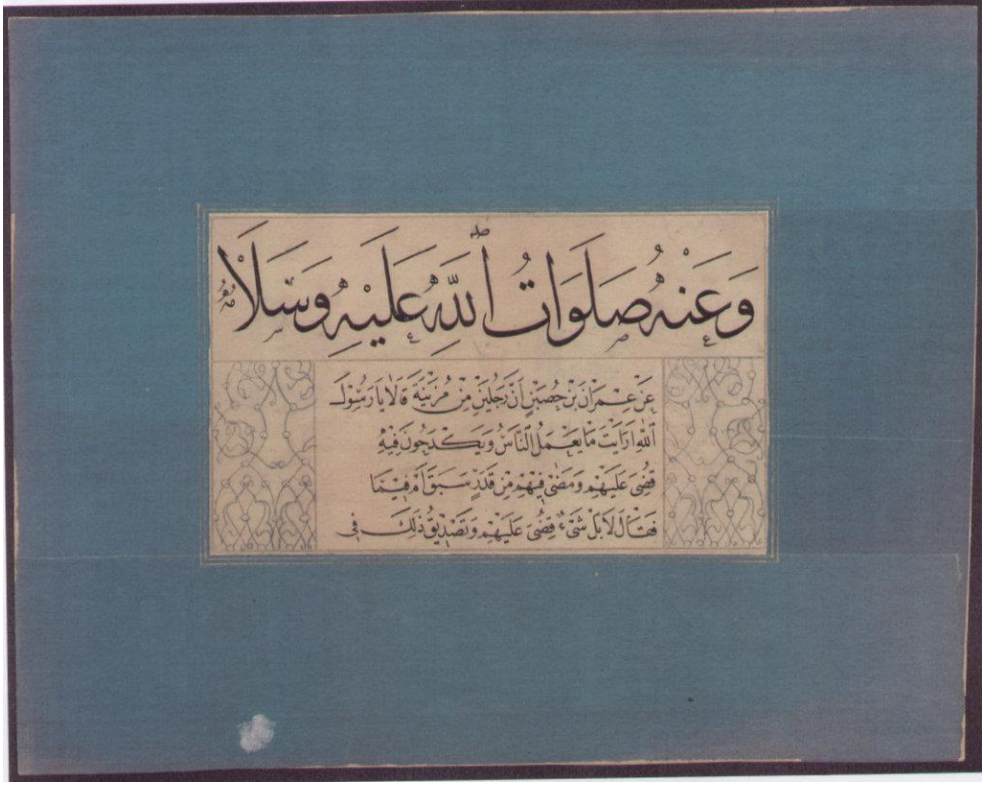 وَعَنْهُ صَلَوَاتُ اللَّهِ عَلَيْهِ وَسَلَامُهُ
عَنْ عِمْرَانَ بْنِ حُصَيْنٍ اَنَّ رَجُلَيْنِ مِنْ مُزَيْنَةَ قَالَا يَا رَسُولَ
اللَّهِ اَرَاَيْتَ مَا يَعْمَلُ النَّاسُ وَيَكْدَحُونَ فِيهِ
قُضِيَ عَلَيْهِمْ وَمَضَىٰ فِيهِمْ مِنْ قَدَرٍ سَبَقَ اَمْ فِيمَا
فَقَالَ لَا بَلْ شَيْءٌ قُضِيَ عَلَيْهِمْ وَتَصْدِيقُ ذٰلِكَ فِي